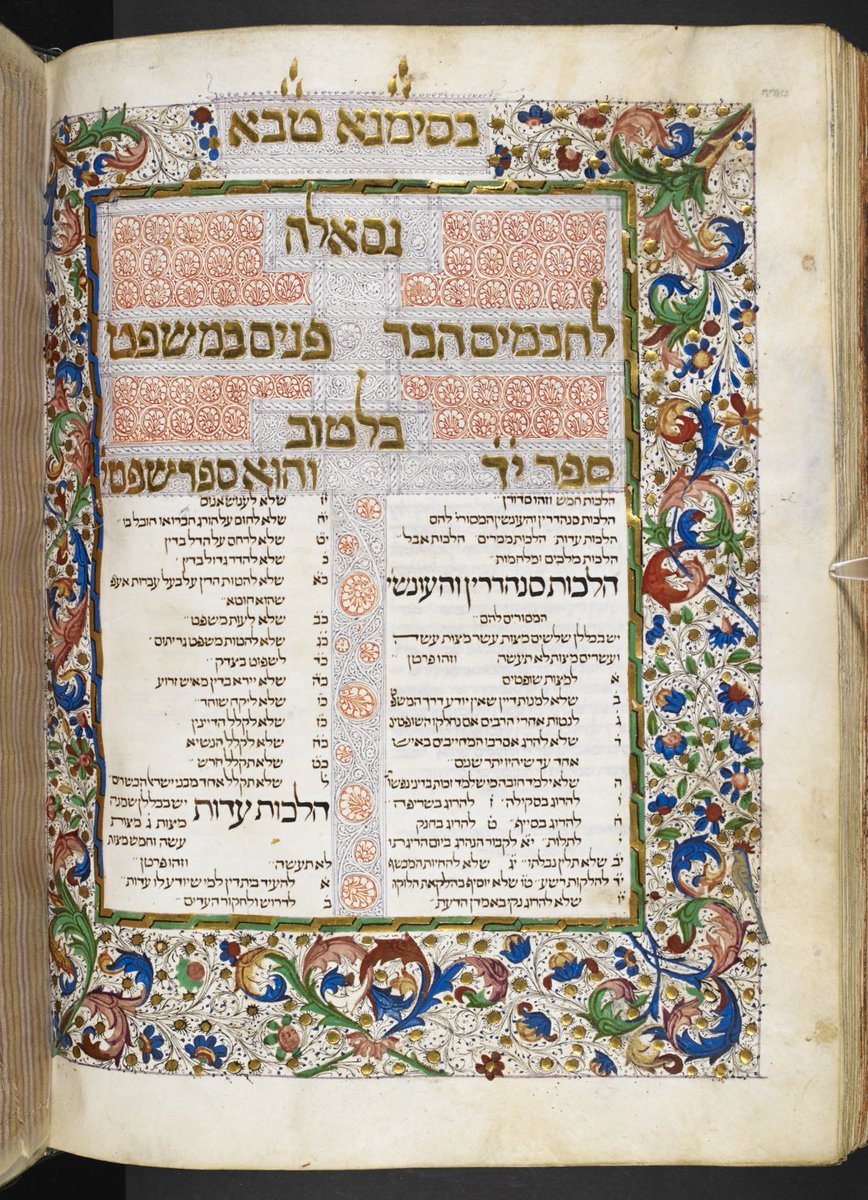 בסימנא טבא
נם אלה
לחכמים הכר פנים במשפט
בל טוב
ספר י״ד והוא ספר שפטי׳
הלכות חמש וזהו סדורן
הלכות סנהדרין והעונשין המסורי׳ להם
הלכות עדות׳ הלכות ממרים הלכות אבל
הלכות מלכים ומלחמות
הלכות סנהדרין והעונשי׳
המסורים להם
יש בכללן שלשים מצות עשר מצות עשה
ועשרים מצות לא תעשה וזהו פרטן
א למנות שופטים
ב שלא למנות דיין שאין יודע דרך המשפ׳
ג לנטות אחרי הרבים אם נחלקו השופטי׳
ד שלא להרוג אם רבו המחייבים באיש
אחד עד שיהיו יתר שנים
ה שלא ילמד חובה מי שלמד זכות בדיני נפשו׳
ו להרוג בסקילה ז להרוג בשריפה
ח להרוג בסייף ט להרוג בחנק
י לתלות יא לקבור הנהרג ביום הריגתו
יב שלא תלין נבלתו יג שלא להחיות המכשף
יד להלקות רשע טו שלא יוסיף בהלקאת הלוקה
יו שלא להרוג נקי באמדן הדעת
יז שלא לענוש אנוס
יח שלא לחוס על הורג חברו או חובל בו
יט שלא לרחם על הדל בדין
כ שלא להדר גדול בדין
כא שלא להטות הדין על בעל עברות אעפ
שהוא חוטא
כב שלא לעות משפט
כג שלא להטות משפט גר יתום
כד לשפוט בצדק
כה שלא יירא בדין מאיש זרוע
כו שלא ליקח שוחד
כז שלא לקלל הדיינין
כח שלא לקלל הנשיא
כט שלא תקלל חרש
ל שלא תקלל אחד מבני ישראל הכשרים
הלכות עדות יש בכללן שמנה
מצות ג מצוות
עשה וחמש מצות
לא תעשה וזהו פרטן
א להעיד בית דין למי שיודע לו עדות
ב לדרוש ולחקור העדים